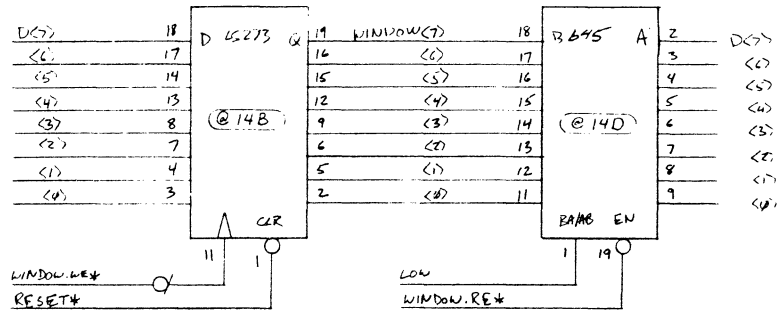 D<7> 18 D LS273 Q 19 WINDOW<7> 18 B 645 A 2 D<7>
<6> 17 16 <6> 17 3 <6>
<5> 14 15 <5> 16 4 <5>
<4> 13 12 <4> 15 5 <4>
<3> 8 @ 14B 9 <3> 14 @ 14D 6 <3>
<2> 7 6 <2> 13 7 <2>
<1> 4 5 <1> 12 8 <1>
<0> 3 2 <0> 11 9 <0>
CLR BA/AB EN
11 1 1 19
WINDOW.WE* LOW
RESET* WINDOW.RE*